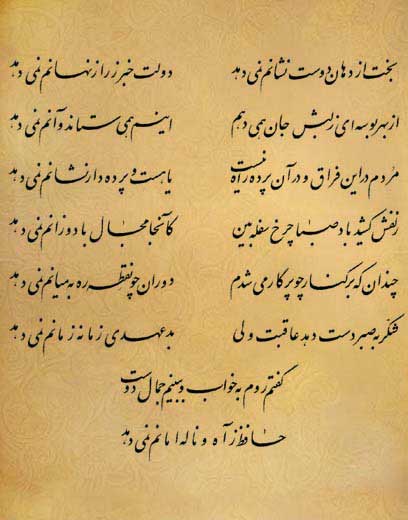 بخت از دهان دوست نشانم نمی دهد دولت خبر ز راز نهانم نمی دهد
از بهر بوسه ای ز لبش جان همی دهم اینم همی ستاند و آنم نمی دهد
مردم در این فراق و در آن پرده راه نیست یا هست و پرده دار نشانم نمی دهد
زلفش کشید باد صبا چرخ سفله بین کآنجا مجال بادوزانم نمی دهد
چندان که بر کنار چو پرگار می شدم دوران چو نقطه ره به میانم نمی دهد
شکر به صبر دست دهد عاقبت ولی بدعهدی زمانه زمانم نمی دهد
گفتم روم به خواب و ببینم جمال دوست
حافظ ز آه و ناله امانم نمی دهد